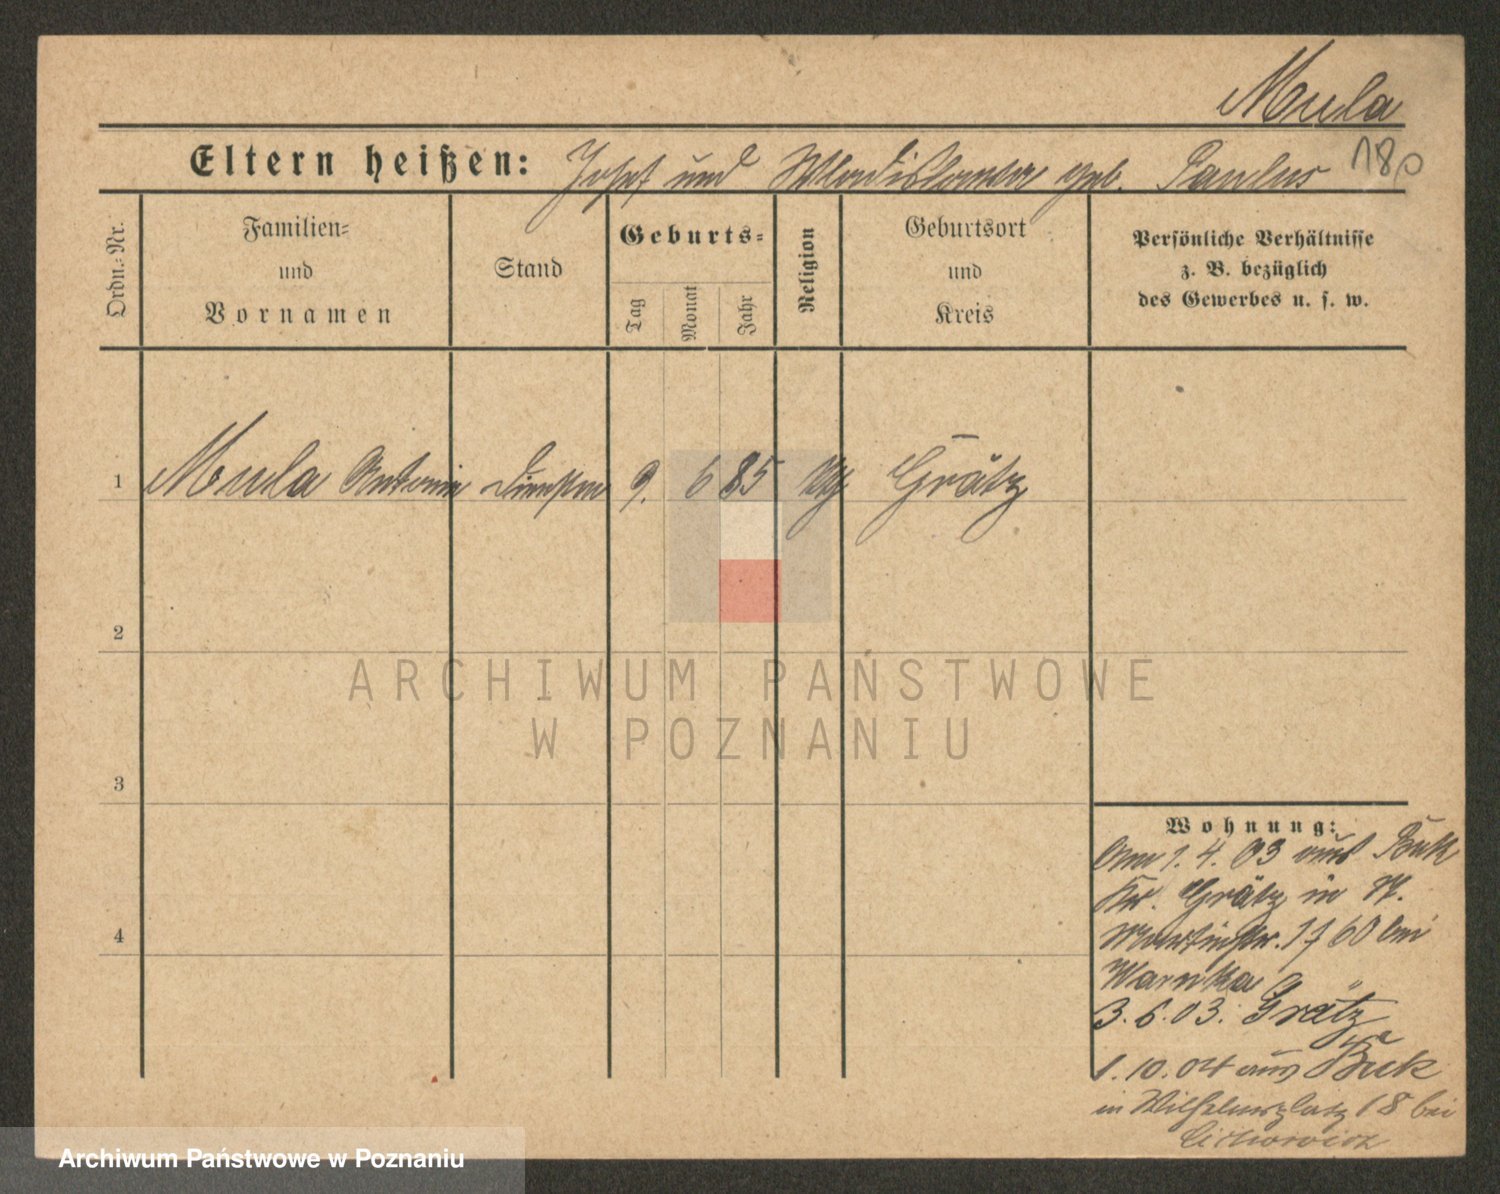 Mula
Eltern heißen: Josef und Wladislawa geb. Paulus 180
Ordn.-Nr.
Familien-
und
Vornamen
Stand
Geburts-
Tag
Monat
Jahr
Religion
Geburtsort
und
Kreis
Persönliche Verhältnisse
z. B. bezüglich
des Gewerbes u. s. w.
1 Mula Antonie 9. 6 85 Grätz
2
ARCHIWUM PAŃSTWOWE
W POZNANIU
3
Wohnung:
Am 1. 4. 03 aus Buk
Kr. Grätz in St.
Martinstr. 60 bei
3. 6. 03. Grätz
4
1. 10. 04 aus Buk
in Wilhelmsplatz 18 bei
Cichowicz
Archiwum Państwowe w Poznaniu